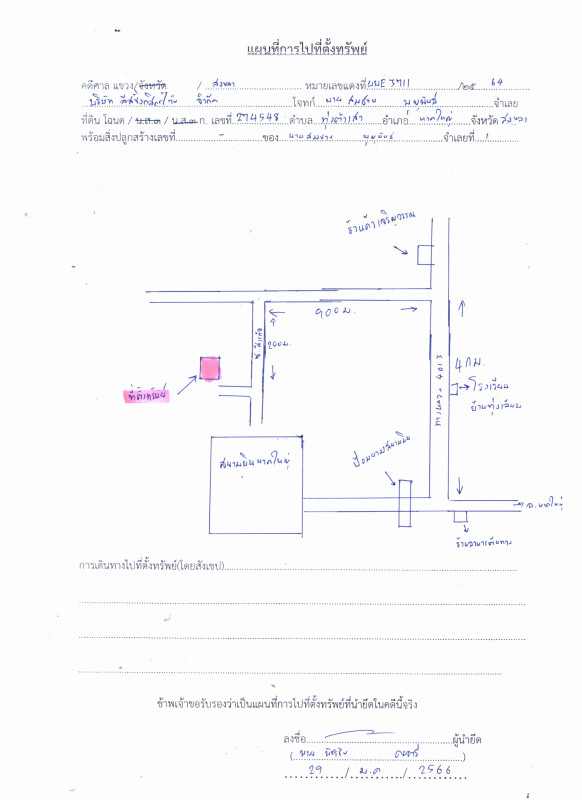 แผนที่การไปที่ตั้งทรัพย์
คดีศาล แขวง/จังหวัด / สงขลา หมายเลขแดงที่ ผบE 3711 /๒๕ 64
บริษัท จำกัด โจทก์ นาย สมชาย จำเลย
ที่ดิน โฉนด / น.ส.๓ / น.ส.๓ ก. เลขที่ 274548 ตำบล ทุ่งตำเสา อำเภอ หาดใหญ่ จังหวัด สงขลา
พร้อมสิ่งปลูกสร้างเลขที่ - ของ นายสมชาย จำเลยที่ 1
ร้านค้าเจริญวรรณ
900 ม.
200ม.
ที่ตั้งทรัพย์
ทางหลวง 4013
4 กม.
โรงเรียน
บ้านทุ่งเลียบ
สนามบินหาดใหญ่
ป้อมยามสนามบิน
อ.หาดใหญ่
การเดินทางไปที่ตั้งทรัพย์(โดยสังเขป)
ข้าพเจ้าขอรับรองว่าเป็นแผนที่การไปที่ตั้งทรัพย์ที่นำยึดในคดีนี้จริง
ลงชื่อ ผู้นำยึด
( นาย )
29 / ม.ค. / 2566